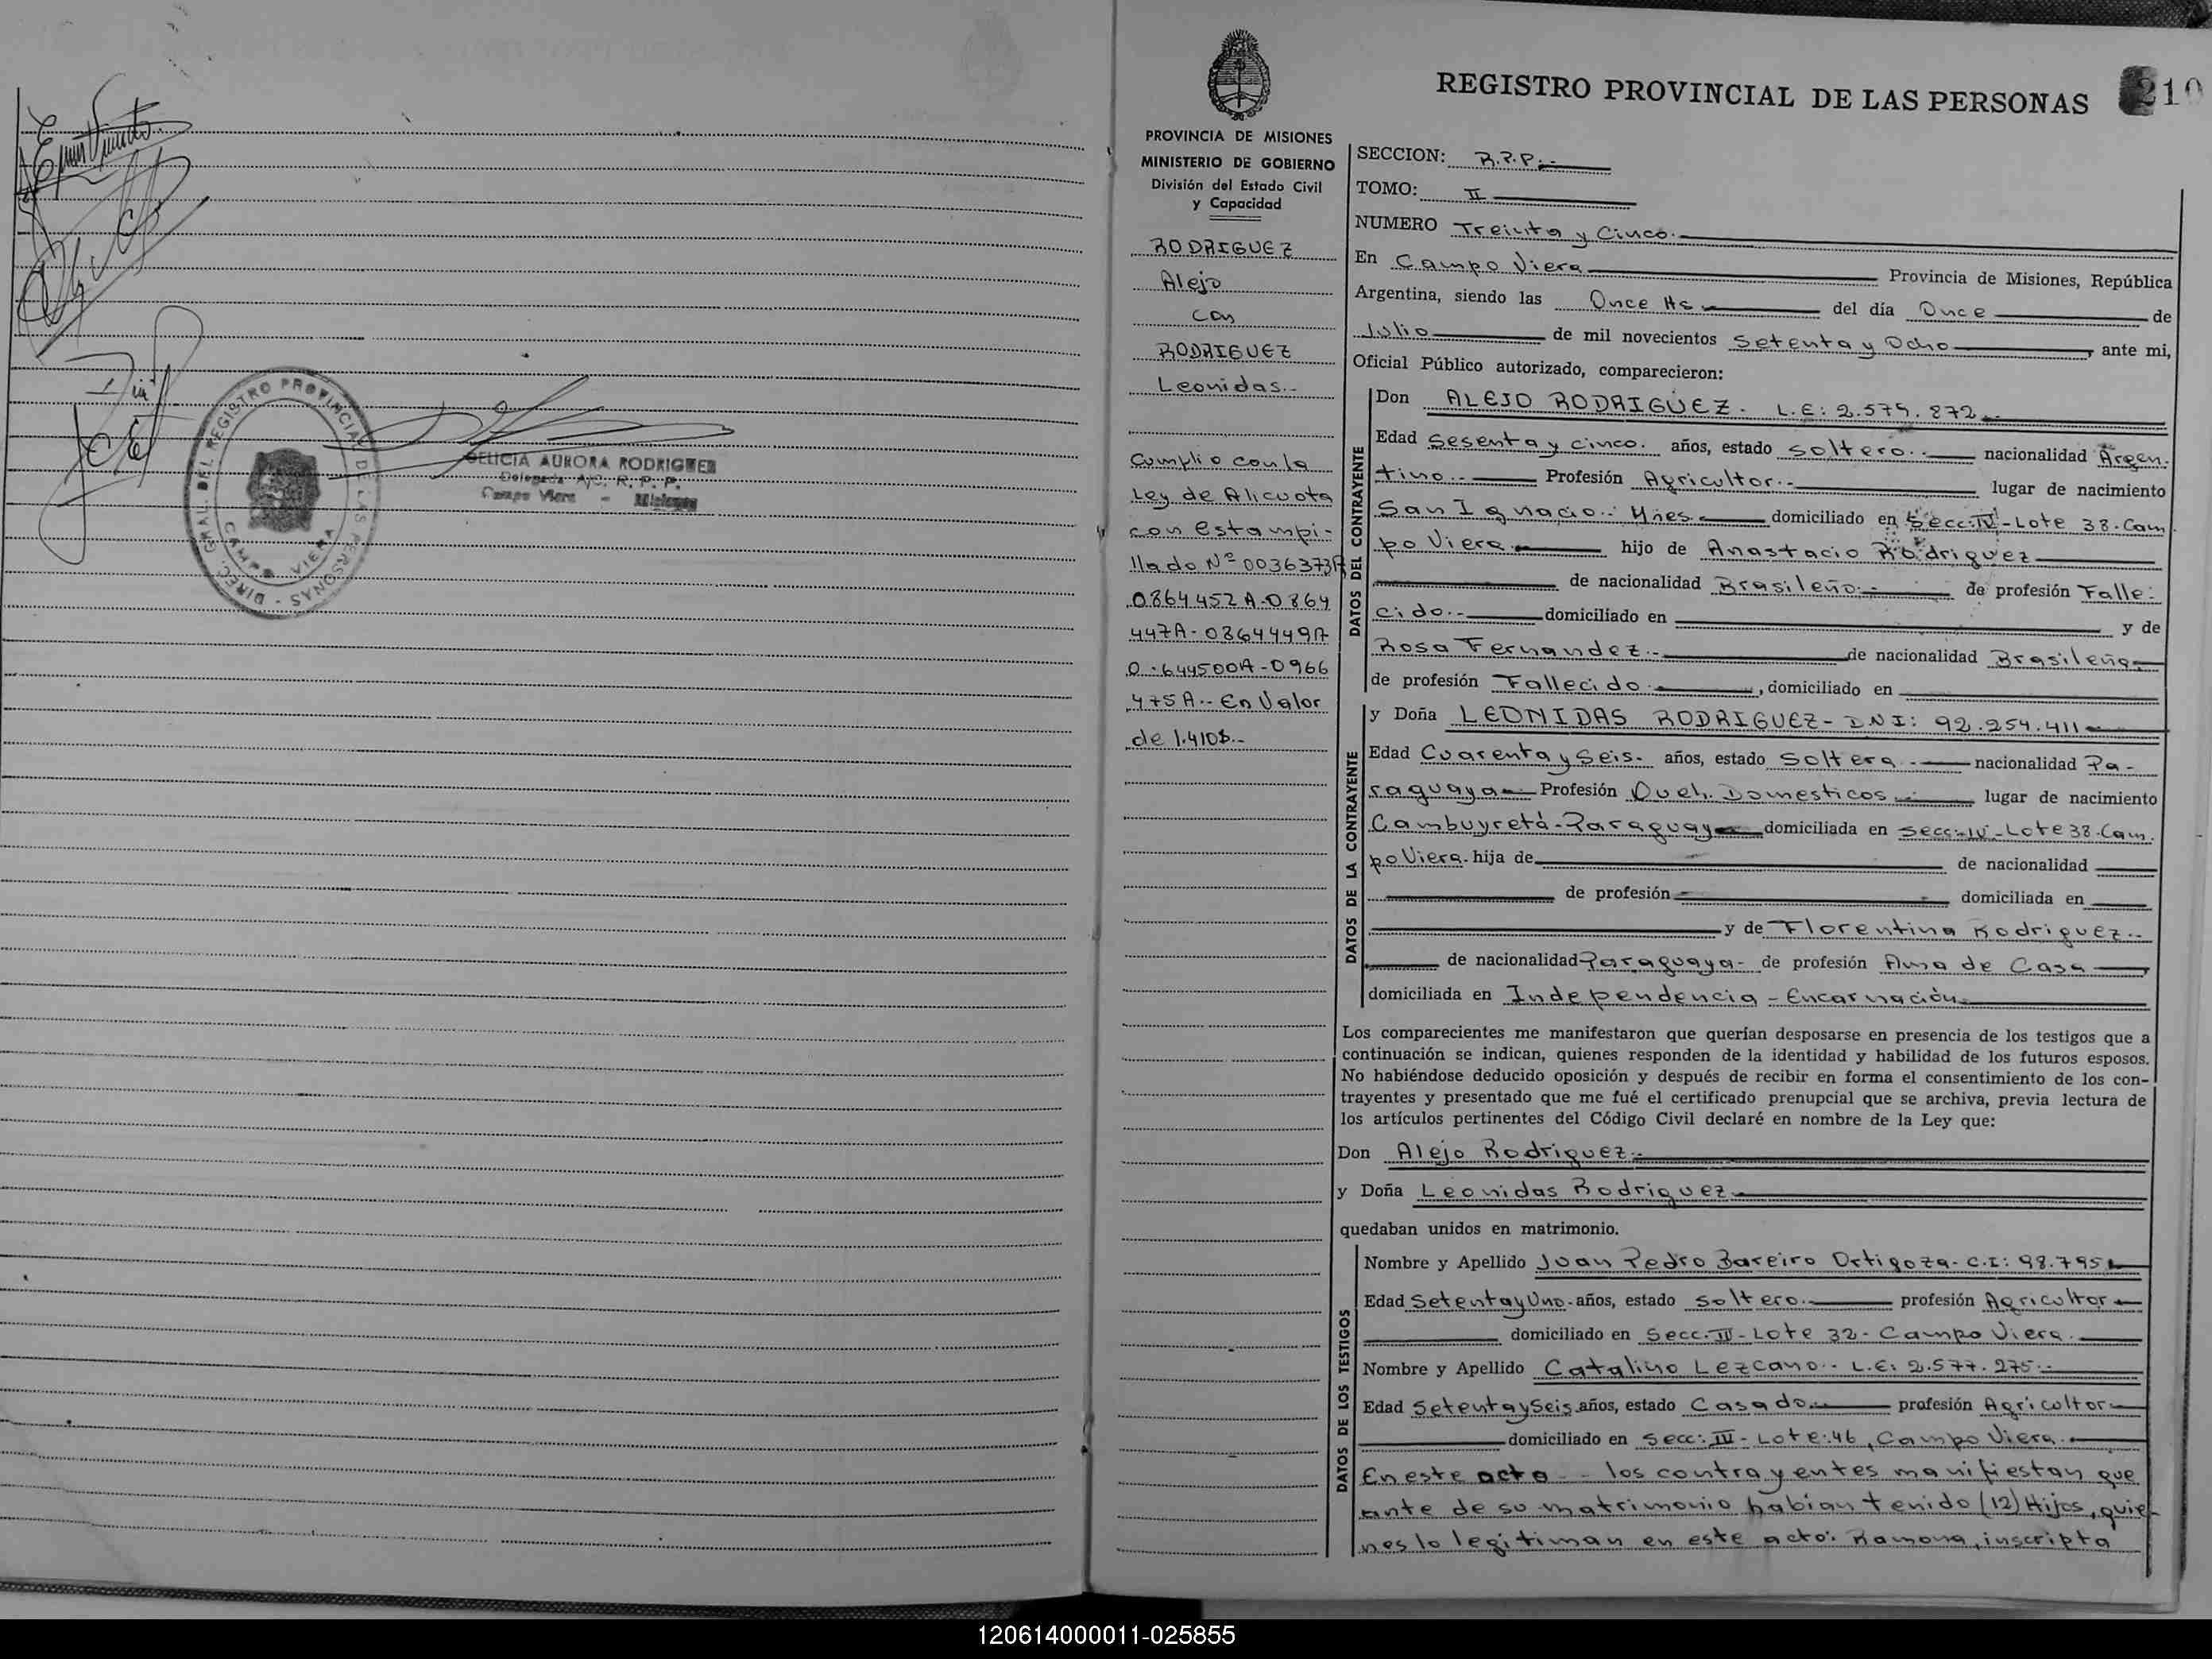 DIREC. GRAL. DEL REGISTRO PROVINCIAL DE LAS PERSONAS -
CAMPO VIERA
AURORA RODRIGUEZ
Delegada A/C. R. P. P.
Campo Viera - Misiones
REGISTRO PROVINCIAL DE LAS PERSONAS
210
PROVINCIA DE MISIONES
MINISTERIO DE GOBIERNO
División del Estado Civil
y Capacidad
RODRIGUEZ
Alejo
con
RODRIGUEZ
Leonidas.-
Cumplio con la
Ley de Alicuota
con estampi-
llado Nº 0036373A
0864452A-0864
447A-0864449A
475A.- En Valor
de 1.410$.-
SECCION: R.P.P.-
TOMO: II
NUMERO Treinta y Cinco.-
En Campo Viera Provincia de Misiones, República
Argentina, siendo las Once Hs del día Once de
Julio de mil novecientos Setenta y Ocho, ante mi,
Oficial Público autorizado, comparecieron:
DATOS DEL CONTRAYENTE
Don ALEJO RODRIGUEZ. L.E: 2.575.872.-
Edad Sesenta y cinco. años, estado soltero.- nacionalidad Argen-
tino.- Profesión Agricultor.- lugar de nacimiento
San Ignacio.- Mnes. domiciliado en Secc:IV-Lote 38-Cam
po Viera.- hijo de Anastacio Rodriguez
de nacionalidad Brasileño.- de profesión Falle-
cido.- domiciliado en y de
Rosa Fernandez.- de nacionalidad Brasileña
de profesión Fallecido.-, domiciliado en
DATOS DE LA CONTRAYENTE
y Doña LEONIDAS RODRIGUEZ- DNI: 92.254.411-
Edad Cuarenta y Seis- años, estado Soltera.- nacionalidad Pa-
raguaya Profesión Queh. Domesticos.- lugar de nacimiento
Cambuyretá-Paraguay domiciliada en secc:-IV-Lote 38-Cam.
po Viera. hija de de nacionalidad
de profesión domiciliada en
y de Florentina Rodriguez.-
de nacionalidad Paraguaya- de profesión Ama de Casa
domiciliada en Independencia - Encarnación
Los comparecientes me manifestaron que querían desposarse en presencia de los testigos que a
continuación se indican, quienes responden de la identidad y habilidad de los futuros esposos.
No habiéndose deducido oposición y después de recibir en forma el consentimiento de los con-
trayentes y presentado que me fué el certificado prenupcial que se archiva, previa lectura de
los artículos pertinentes del Código Civil declaré en nombre de la Ley que:
Don Alejo Rodriguez.-
y Doña Leonidas Rodriguez
quedaban unidos en matrimonio.
DATOS DE LOS TESTIGOS
Nombre y Apellido Juan Pedro Bareiro Ortigoza- C.I: 98.795
Edad Setenta y Uno- años, estado soltero.- profesión Agricultor
domiciliado en Secc:III-Lote 32- Campo Viera.
Nombre y Apellido Catalino Lezcano.- L.E: 2.577.275.-
Edad Setenta y Seis años, estado Casado.- profesión Agricultor
domiciliado en Secc: III- Lote:46, Campo Viera.-
En este acto - los contrayentes manifiestan que
ante de su matrimonio habian tenido (12) Hijos, quie-
nes lo legitiman en este acto: Ramona, inscripta
120614000011-025855